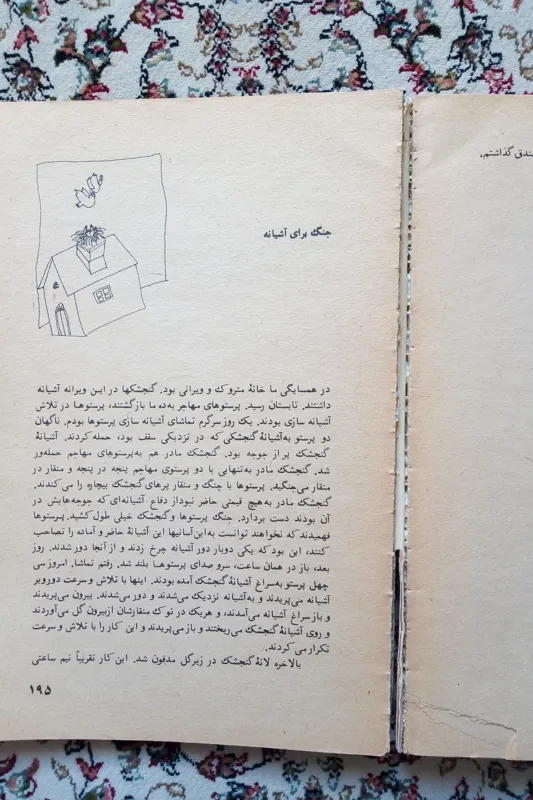 خندق گذاشتم.
جنگ برای آشیانه
در همسایگی ما خانهٔ متروک و ویرانی بود. گنجشکها در این ویرانه آشیانه
داشتند. تابستان رسید. پرستوهای مهاجر به‌ده ما بازگشتند، پرستوها در تلاش
آشیانه سازی بودند. یک روز سرگرم تماشای آشیانه سازی پرستوها بودم. ناگهان
دو پرستو به‌آشیانهٔ گنجشکی که در نزدیکی سقف بود، حمله کردند. آشیانهٔ
گنجشک پر از جوجه بود. گنجشک مادر هم به‌پرستوهای مهاجم حمله‌ور
شد. گنجشک مادر به‌تنهایی با دو پرستوی مهاجم پنجه در پنجه و منقار در
منقار می‌جنگید. پرستوها با چنگ و منقار پرهای گنجشک بیچاره را می‌کندند.
گنجشک مادر به‌هیچ قیمتی حاضر نبود از دفاع آشیانه‌ای که جوجه‌هایش در
آن بودند دست بردارد. جنگ پرستوها و گنجشک خیلی طول کشید. پرستوها
فهمیدند که نخواهند توانست به‌این‌آسانیها این آشیانهٔ حاضر و آماده را تصاحب
کنند، این بود که یکی دوبار دور آشیانه چرخ زدند و از آنجا دور شدند. روز
بعد، باز در همان ساعت، سرو صدای پرستوها بلند شد. رفتم تماشا. امروز سی
چهل پرستو به‌سراغ آشیانهٔ گنجشک آمده بودند. اینها با تلاش و سرعت دوروبر
آشیانه می‌پریدند و به‌آشیانه نزدیک می‌شدند و دور می‌شدند. بیرون می‌پریدند
و باز سراغ آشیانه می‌آمدند، و هریک در نوک منقارشان ازبیرون گل می‌آوردند
و روی آشیانهٔ گنجشک می‌ریختند و باز می‌پریدند و این کار را با تلاش و سرعت
تکرار می‌کردند.
بالاخره لانهٔ گنجشک در زیرگل مدفون شد. این کار تقریباً نیم ساعتی
۱۹۵